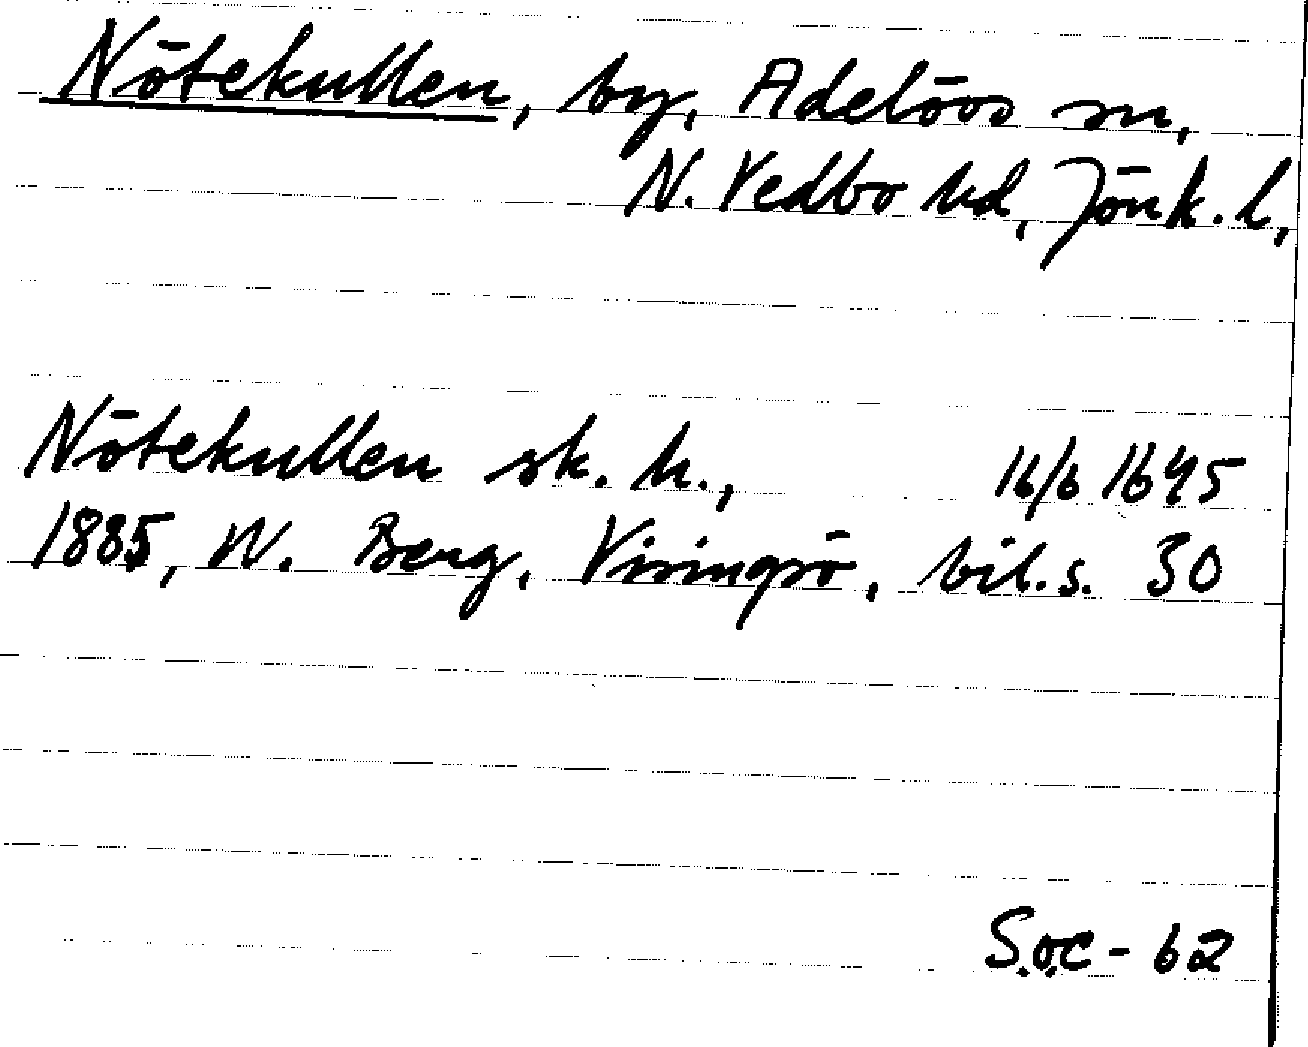 Nötekullen, by, Adelövs sn,
N. Vedbo hd, Jönk. l,
Nötekullen sk. h., 16/6 1645
1885, W. Berg, Visingsö, bil. s. 30
S.O.C - 62